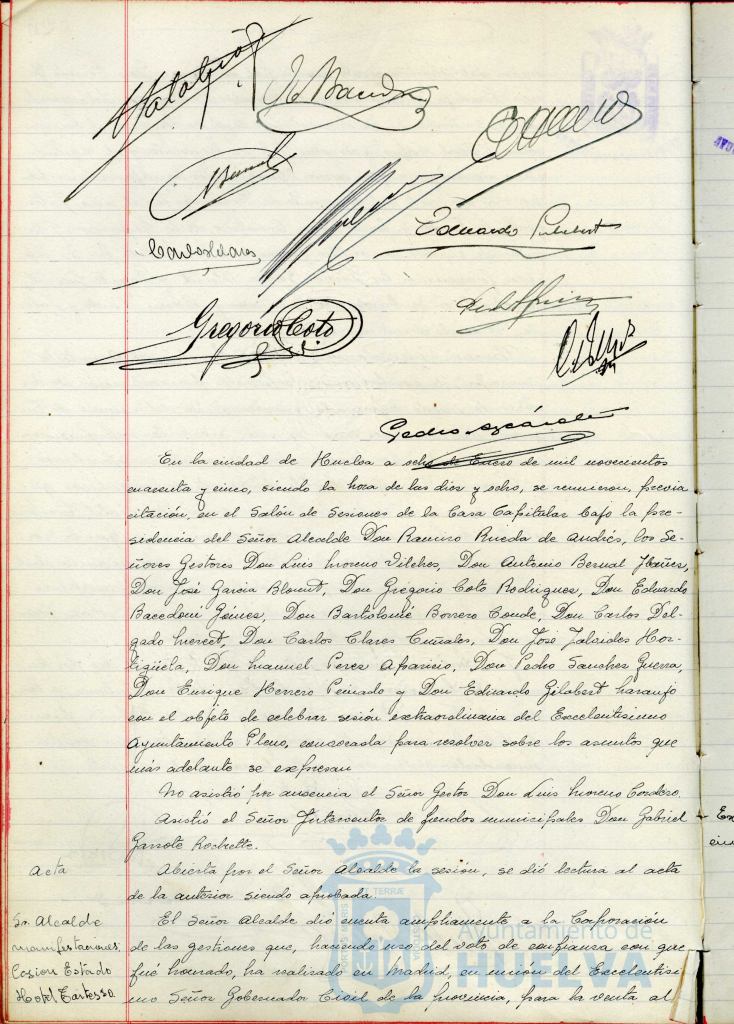 Eduardo Gilabert
Gregorio Coto
En la ciudad de Huelva a ocho de Enero de mil novecientos
cuarenta y cinco, siendo la hora de las dies y ocho, se reunieron, previa
citación, en el Salón de Sesiones de la Casa Capitular bajo la pre-
sidencia del Señor Alcalde Don Ramiro Rueda de Andrés, los Se-
ñores Gestores Don Luis Moreno Vilches, Don Antonio Bernal Ibañes,
Don José Garcia Blomt, Don Gregorio Coto Rodrigues, Don Eduardo
Bacedoni Gómes, Don Bartolomé Borrero Conde, Don Carlos Del-
gado Merect, Don Carlos Clares Cuñales, Don José Jaldes Hor-
tigüela, Don Manuel Peres Aparicio, Don Pedro Sanches Guerra,
Don Enrique Herrero Peinado y Don Eduardo Gilabert Naranjo
con el objeto de celebrar sesión extraordinaria del Excelentisimo
Ayuntamiento Pleno, convocada para resolver sobre los asuntos que
más adelante se expresan
No asistió por ausencia el Señor Gestor Don Luis Moreno Cordero.
Asistió el Señor Interventor de fondos municipales Don Gabriel
Garrote Rochette.
Acta
Abierta por el Señor Alcalde la sesión, se dió lectura al acta
de la anterior siendo aprobada.
Sr. Alcalde
manifestaciones
Cesion Estado
Hotel Tartesso.
El Señor Alcalde dió cuenta ampliamente a la Corporación
de las gestiones que, haciendo uso del voto de confianza con que
fué honrado, ha realizado en Madrid, en union del Excelentisi-
mo Señor Gobernador Civil de la provincia, para la venta al
Ayuntamiento de
HUELVA